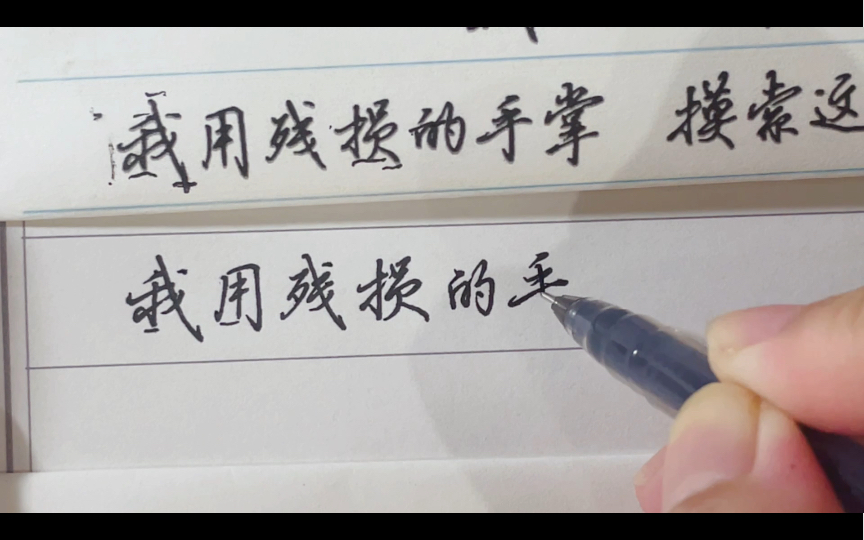 我用残损的手掌 摸索这
我用残损的手